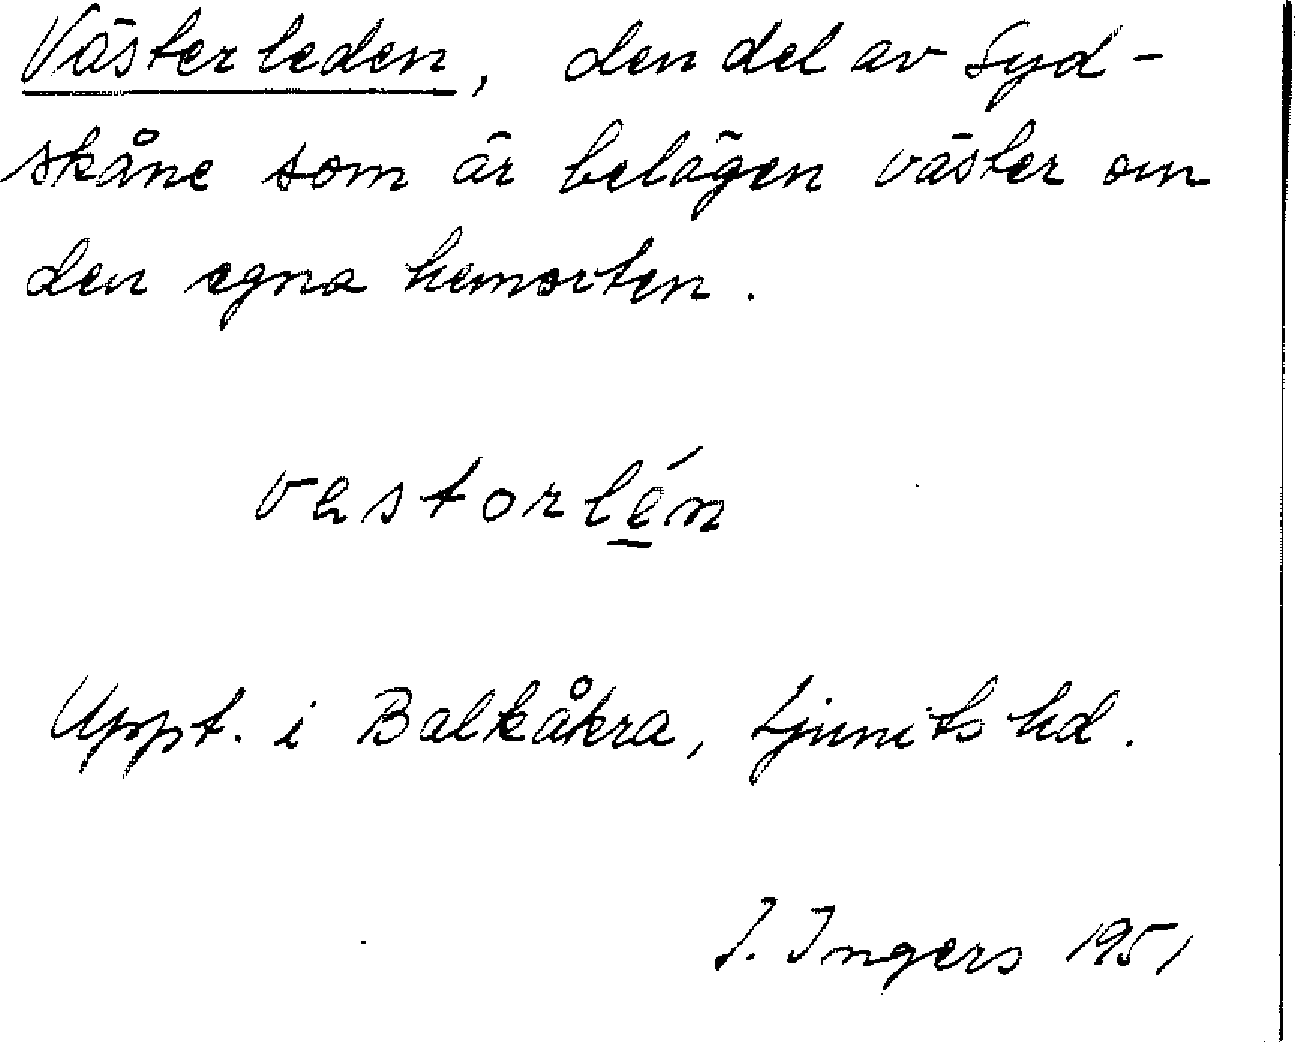 Västerleden, den del av Syd-
skåne som är belägen väster om
den egna hemorten.
vastorlén
Uppt. i Balkåkra, Ljunits hd.
I. Ingers 1951